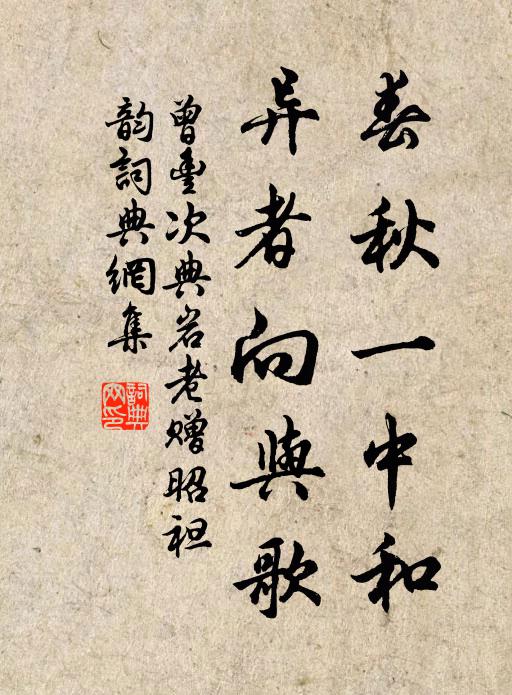 春秋一中和
异者向與歌
曾豐次典岩老赠昭祖
韵詞典網集
詞典网印